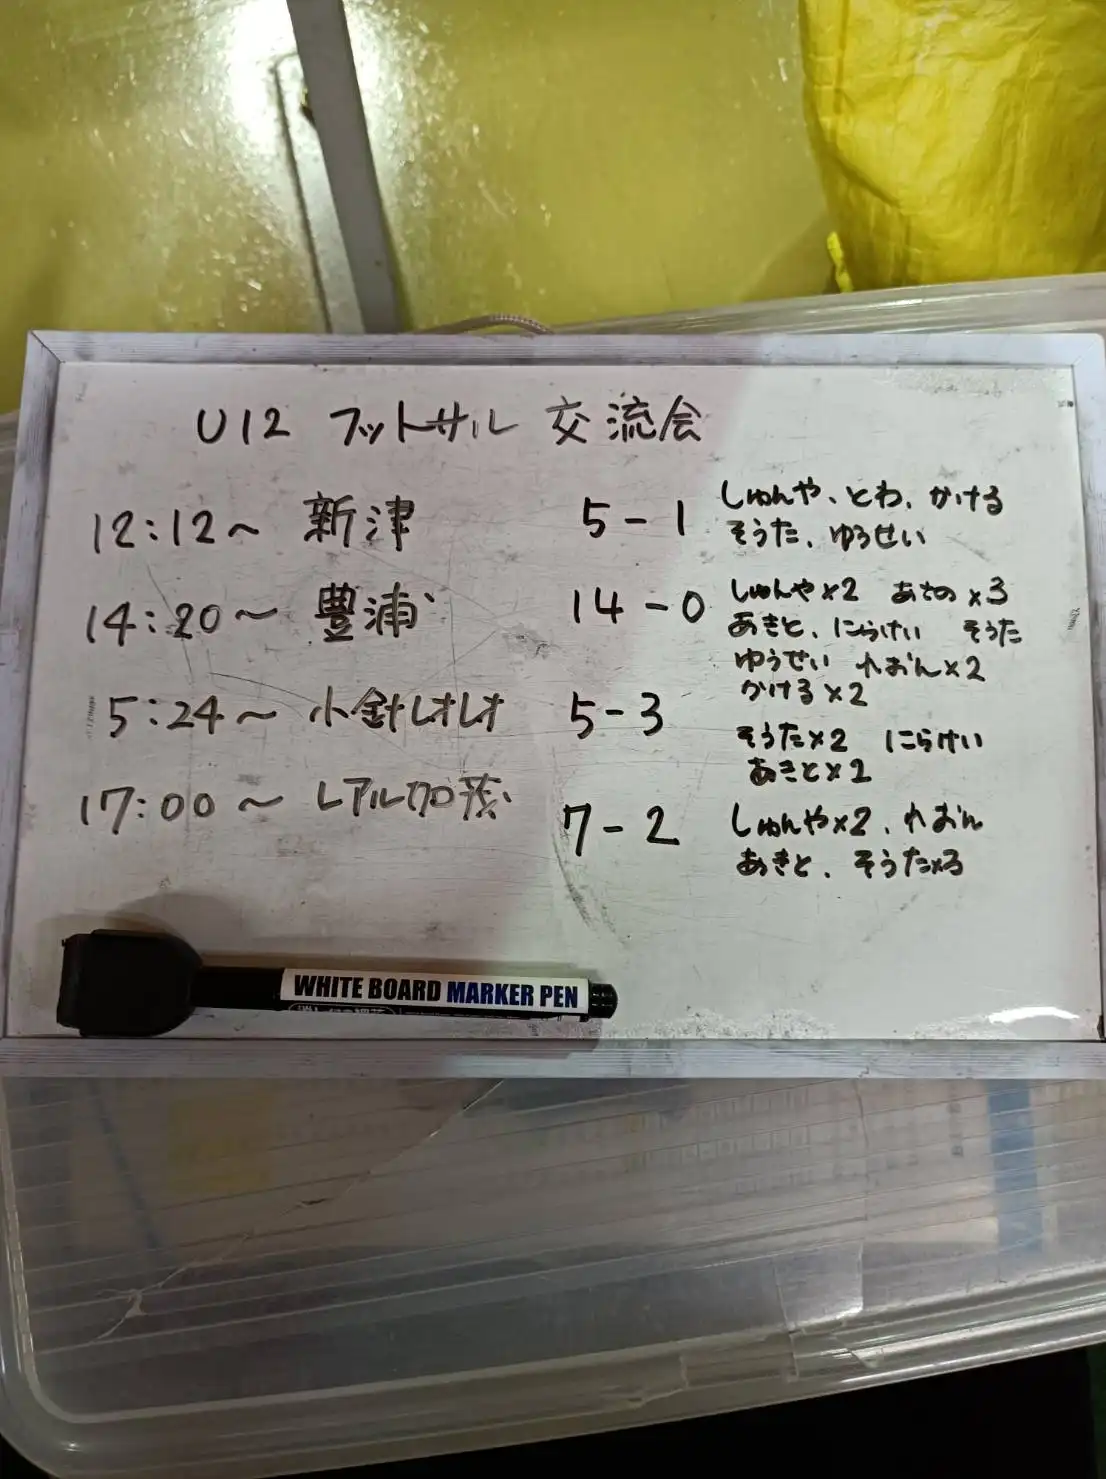 U12 フットサル 交流会
12:12〜 新津 5-1 しゅんや、とわ、かける
そうた、ゆうせい
14:20〜 豊浦 14-0 しゅんや×2 あさの×3
あきと、にらけい そうた
ゆうせい れおん×2
かける×2
5:24〜 小針レオレオ 5-3
そうた×2 にらけい
あきと×2
17:00〜 レアル加茂 7-2 しゅんや×2、れおん
あきと、そうた×3
WHITE BOARD MARKER PEN